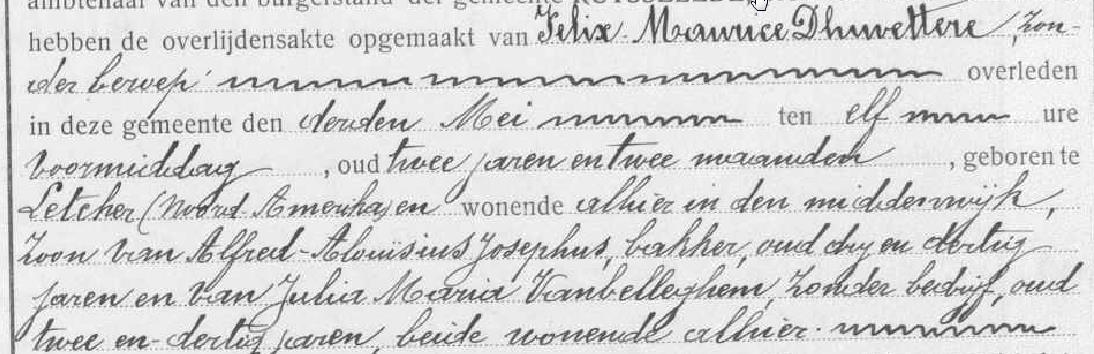 ambtenaar van den burgerstand der gemeente RUYSSELEDE
hebben de overlijdensakte opgemaakt van Felix Maurice Dhuvettere, zon-
der beroep overleden
in deze gemeente den derden Mei ten elf ure
voormiddag , oud twee jaren en twee maanden , geboren te
Letcher (Noord Amerika) en wonende alhier in den middenwijk,
zoon van Alfred-Aloïsius Josephus, bakker, oud dry en dertig
jaren en van Julia Maria Vanbelleghem, zonder bedrijf, oud
twee en dertig jaren, beide wonende alhier.